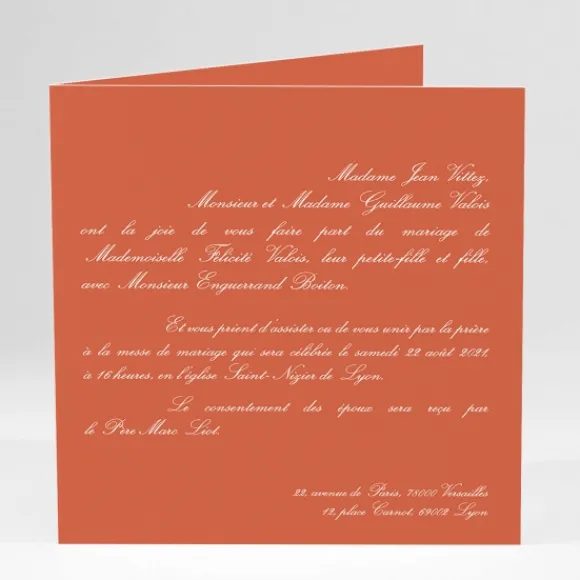 Madame Jean Vittez,
Monsieur et Madame Guillaume Valois
ont la joie de vous faire part du mariage de
Mademoiselle Félicité Valois, leur petite-fille et fille,
avec Monsieur Enguerrand Boiton.
Et vous prient d'assister ou de vous unir par la prière
à la messe de mariage qui sera célébrée le samedi 22 août 2021,
à 16 heures, en l'église Saint-Nizier de Lyon.
Le consentement des époux sera reçu par
le Père Marc Liot.
22, avenue de Paris, 78000 Versailles
12, place Carnot, 69002 Lyon